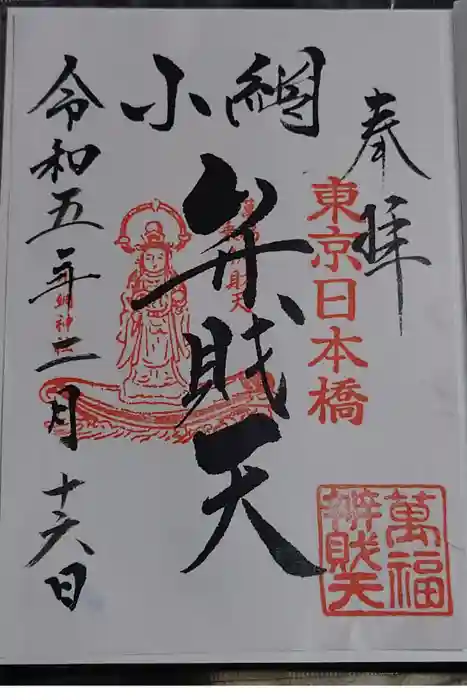 奉拝
東京日本橋
萬福
辨財天
小網
弁財天
令和五年二月十六日
網神社